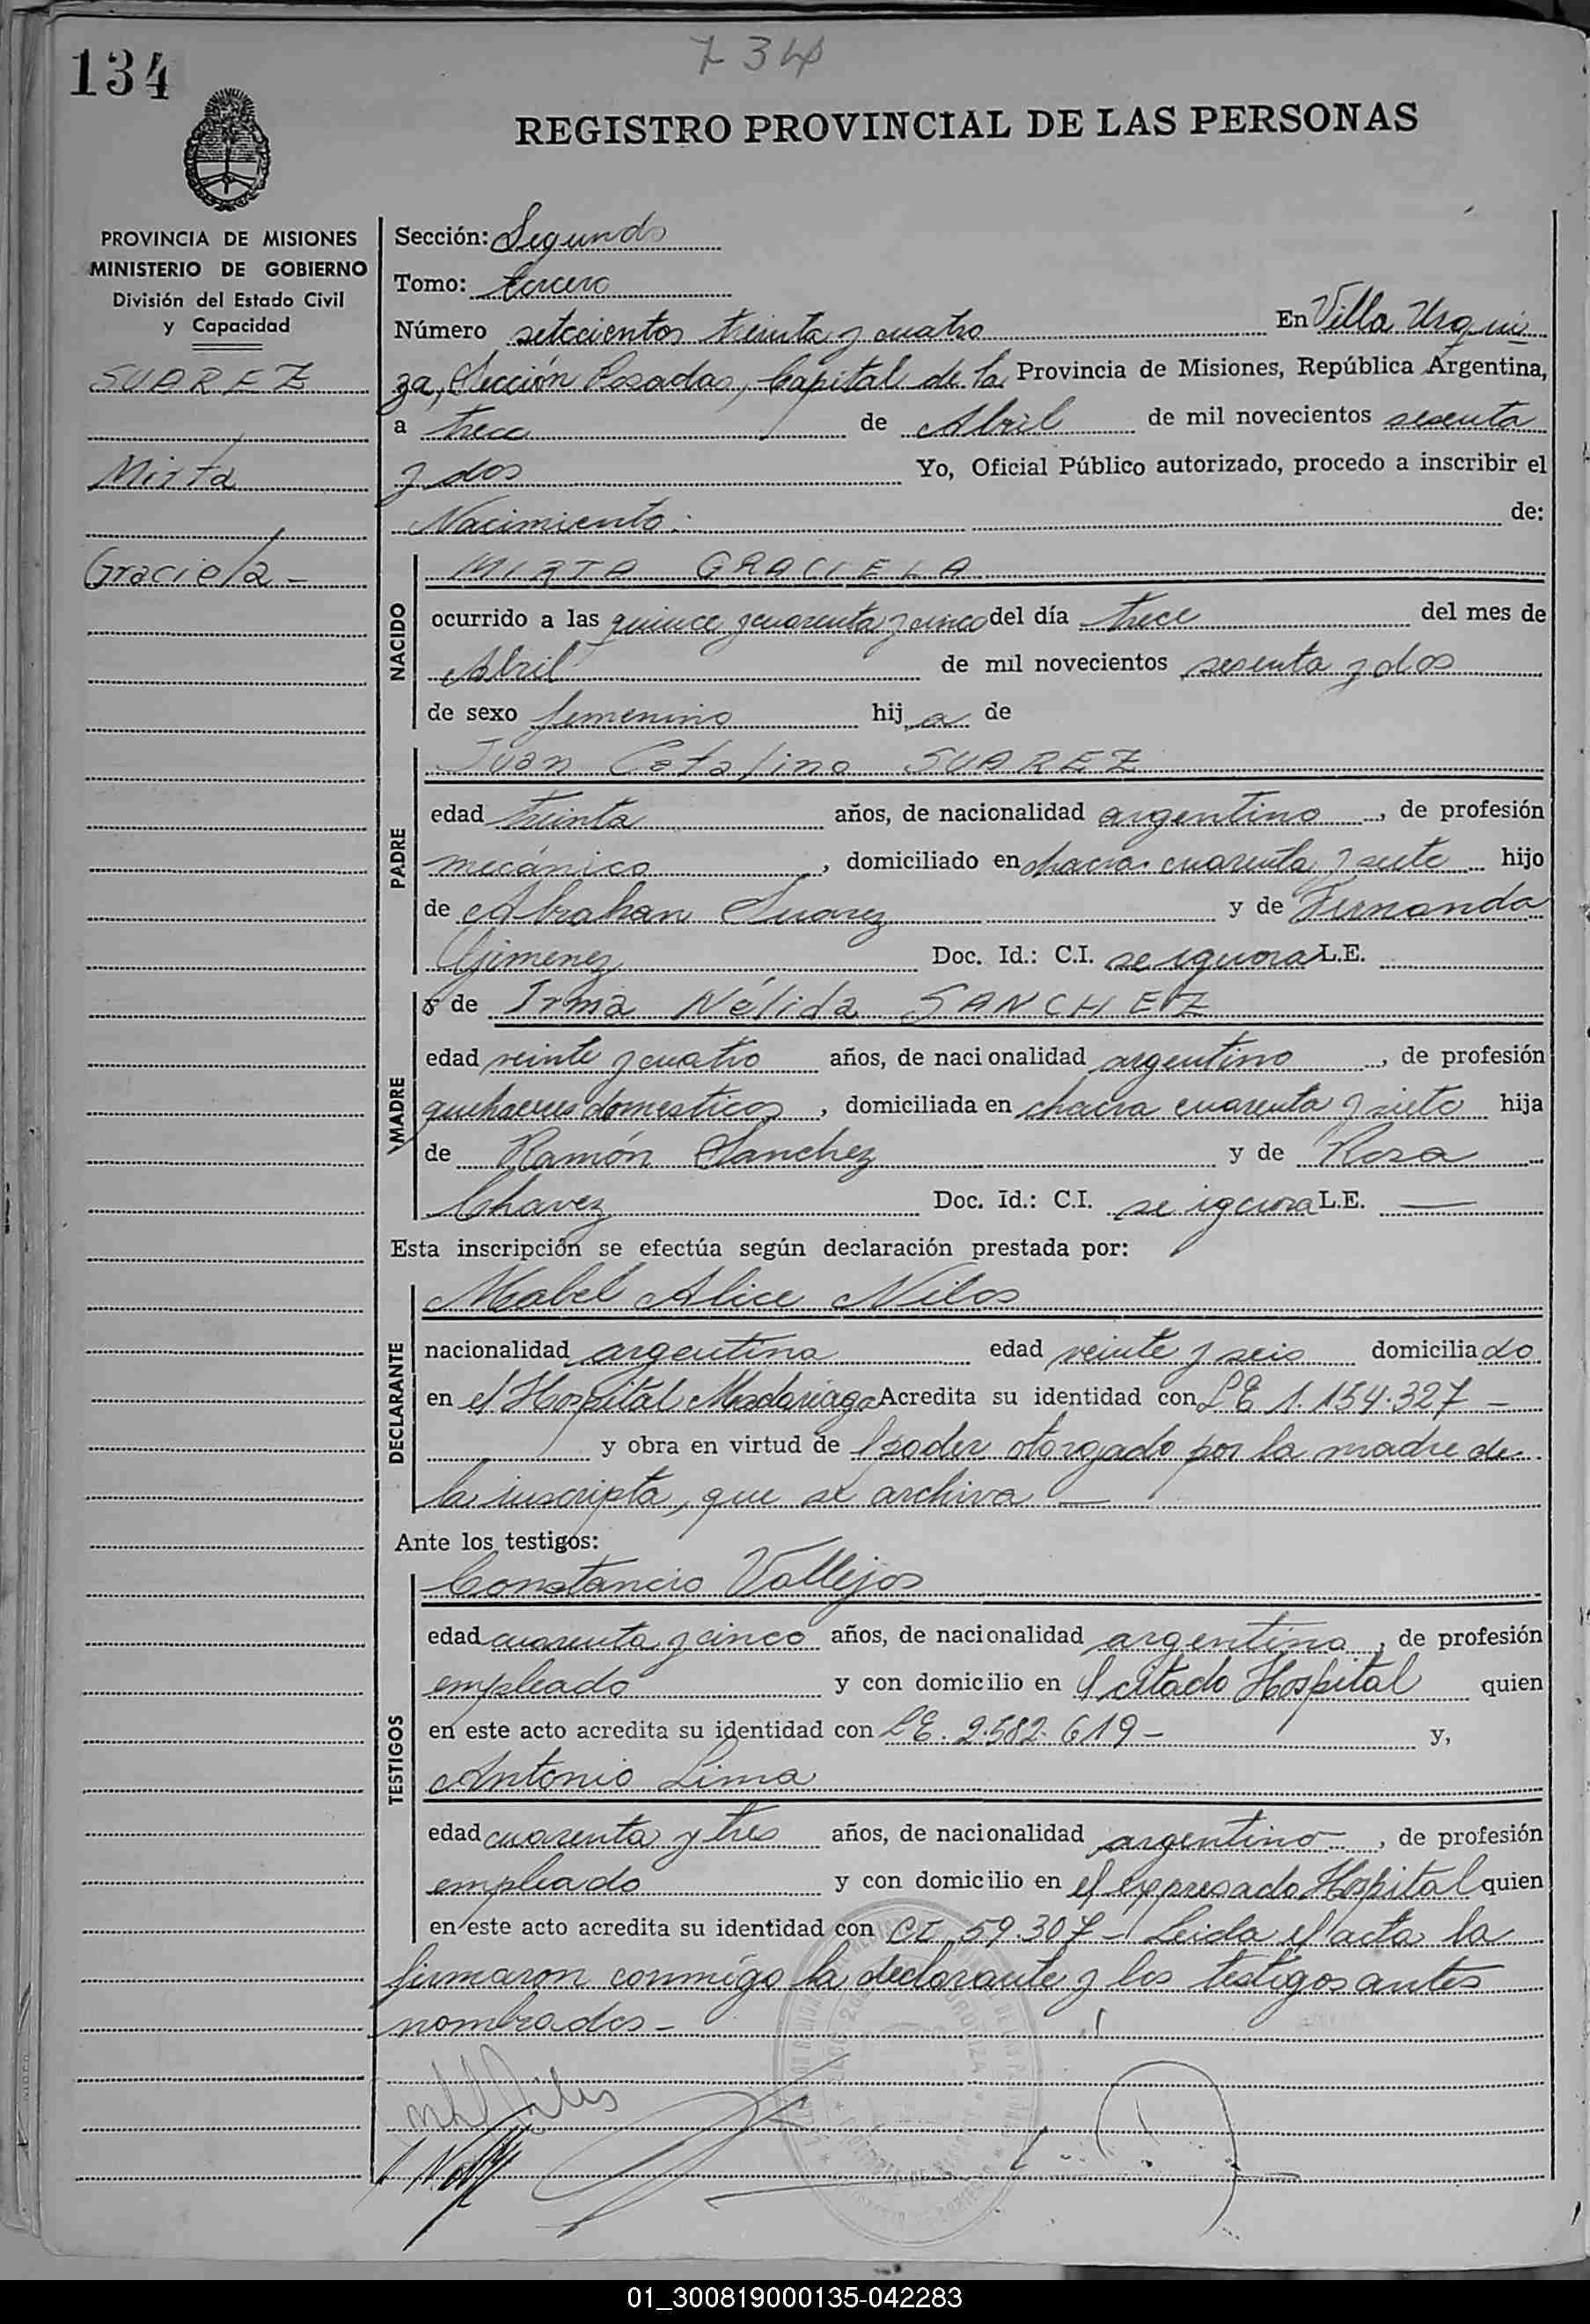 134
734
REGISTRO PROVINCIAL DE LAS PERSONAS
PROVINCIA DE MISIONES
MINISTERIO DE GOBIERNO
División del Estado Civil
y Capacidad
SUAREZ
Mirta
Graciela -
Sección: Segunda
Tomo: tercero
Número setecientos treinta y cuatro En Villa Urqui
za, Sección Posadas, Capital de la Provincia de Misiones, República Argentina,
a trece de Abril de mil novecientos sesenta
y dos Yo, Oficial Público autorizado, procedo a inscribir el
Nacimiento: de:
NACIDO
MIRTA GRACIELA
ocurrido a las quince y cuarenta y cinco del día trece del mes de
Abril de mil novecientos sesenta y dos
de sexo femenino hij a de
PADRE
Juan Catalino SUAREZ
edad treinta años, de nacionalidad argentino, de profesión
mecánico, domiciliado en chacra cuarenta y siete hijo
de Abrahan Suarez y de Fernanda
Gimenez Doc. Id.: C.I. se ignora L.E.
MADRE
y de Irma Nélida SANCHEZ
edad veinte y cuatro años, de nacionalidad argentino, de profesión
quehaceres domesticos, domiciliada en chacra cuarenta y siete hija
de Ramón Sanchez y de Rosa
Chavez Doc. Id.: C.I. se ignora L.E. —
Esta inscripción se efectúa según declaración prestada por:
DECLARANTE
Mabel Alice Nilos
nacionalidad argentina edad veinte y seis domiciliado
en el Hospital Madariaga Acredita su identidad con LE 1.154.327 -
y obra en virtud de l poder otorgado por la madre de
la inscripta, que se archiva —
Ante los testigos:
TESTIGOS
Constancio Vallejos
edad cuarenta y cinco años, de nacionalidad argentino, de profesión
empleado y con domicilio en el citado Hospital quien
en este acto acredita su identidad con LE. 2.582.619 - y,
Antonio Lima
edad cuarenta y tres años, de nacionalidad argentino, de profesión
empleado y con domicilio en el expresado Hospital quien
en este acto acredita su identidad con CI 59.307 - Leida el acta la
firmaron conmigo la declarante y los testigos antes
nombrados -
01_300819000135-042283